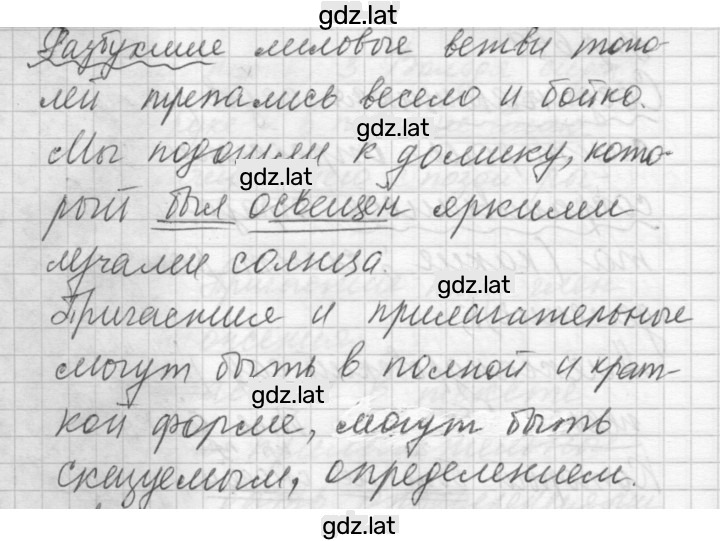 gdz.lat
Разбухшие лиловые ветви топо-
лей трепались весело и бойко.
gdz.lat
Мы подошли к домику, кото-
gdz.lat
рый был освещен яркими
лучами солнца.
gdz.lat
Причастия и прилагательные
могут быть в полной и крат-
gdz.lat
кой форме, могут быть
сказуемым, определением.
gdz.lat